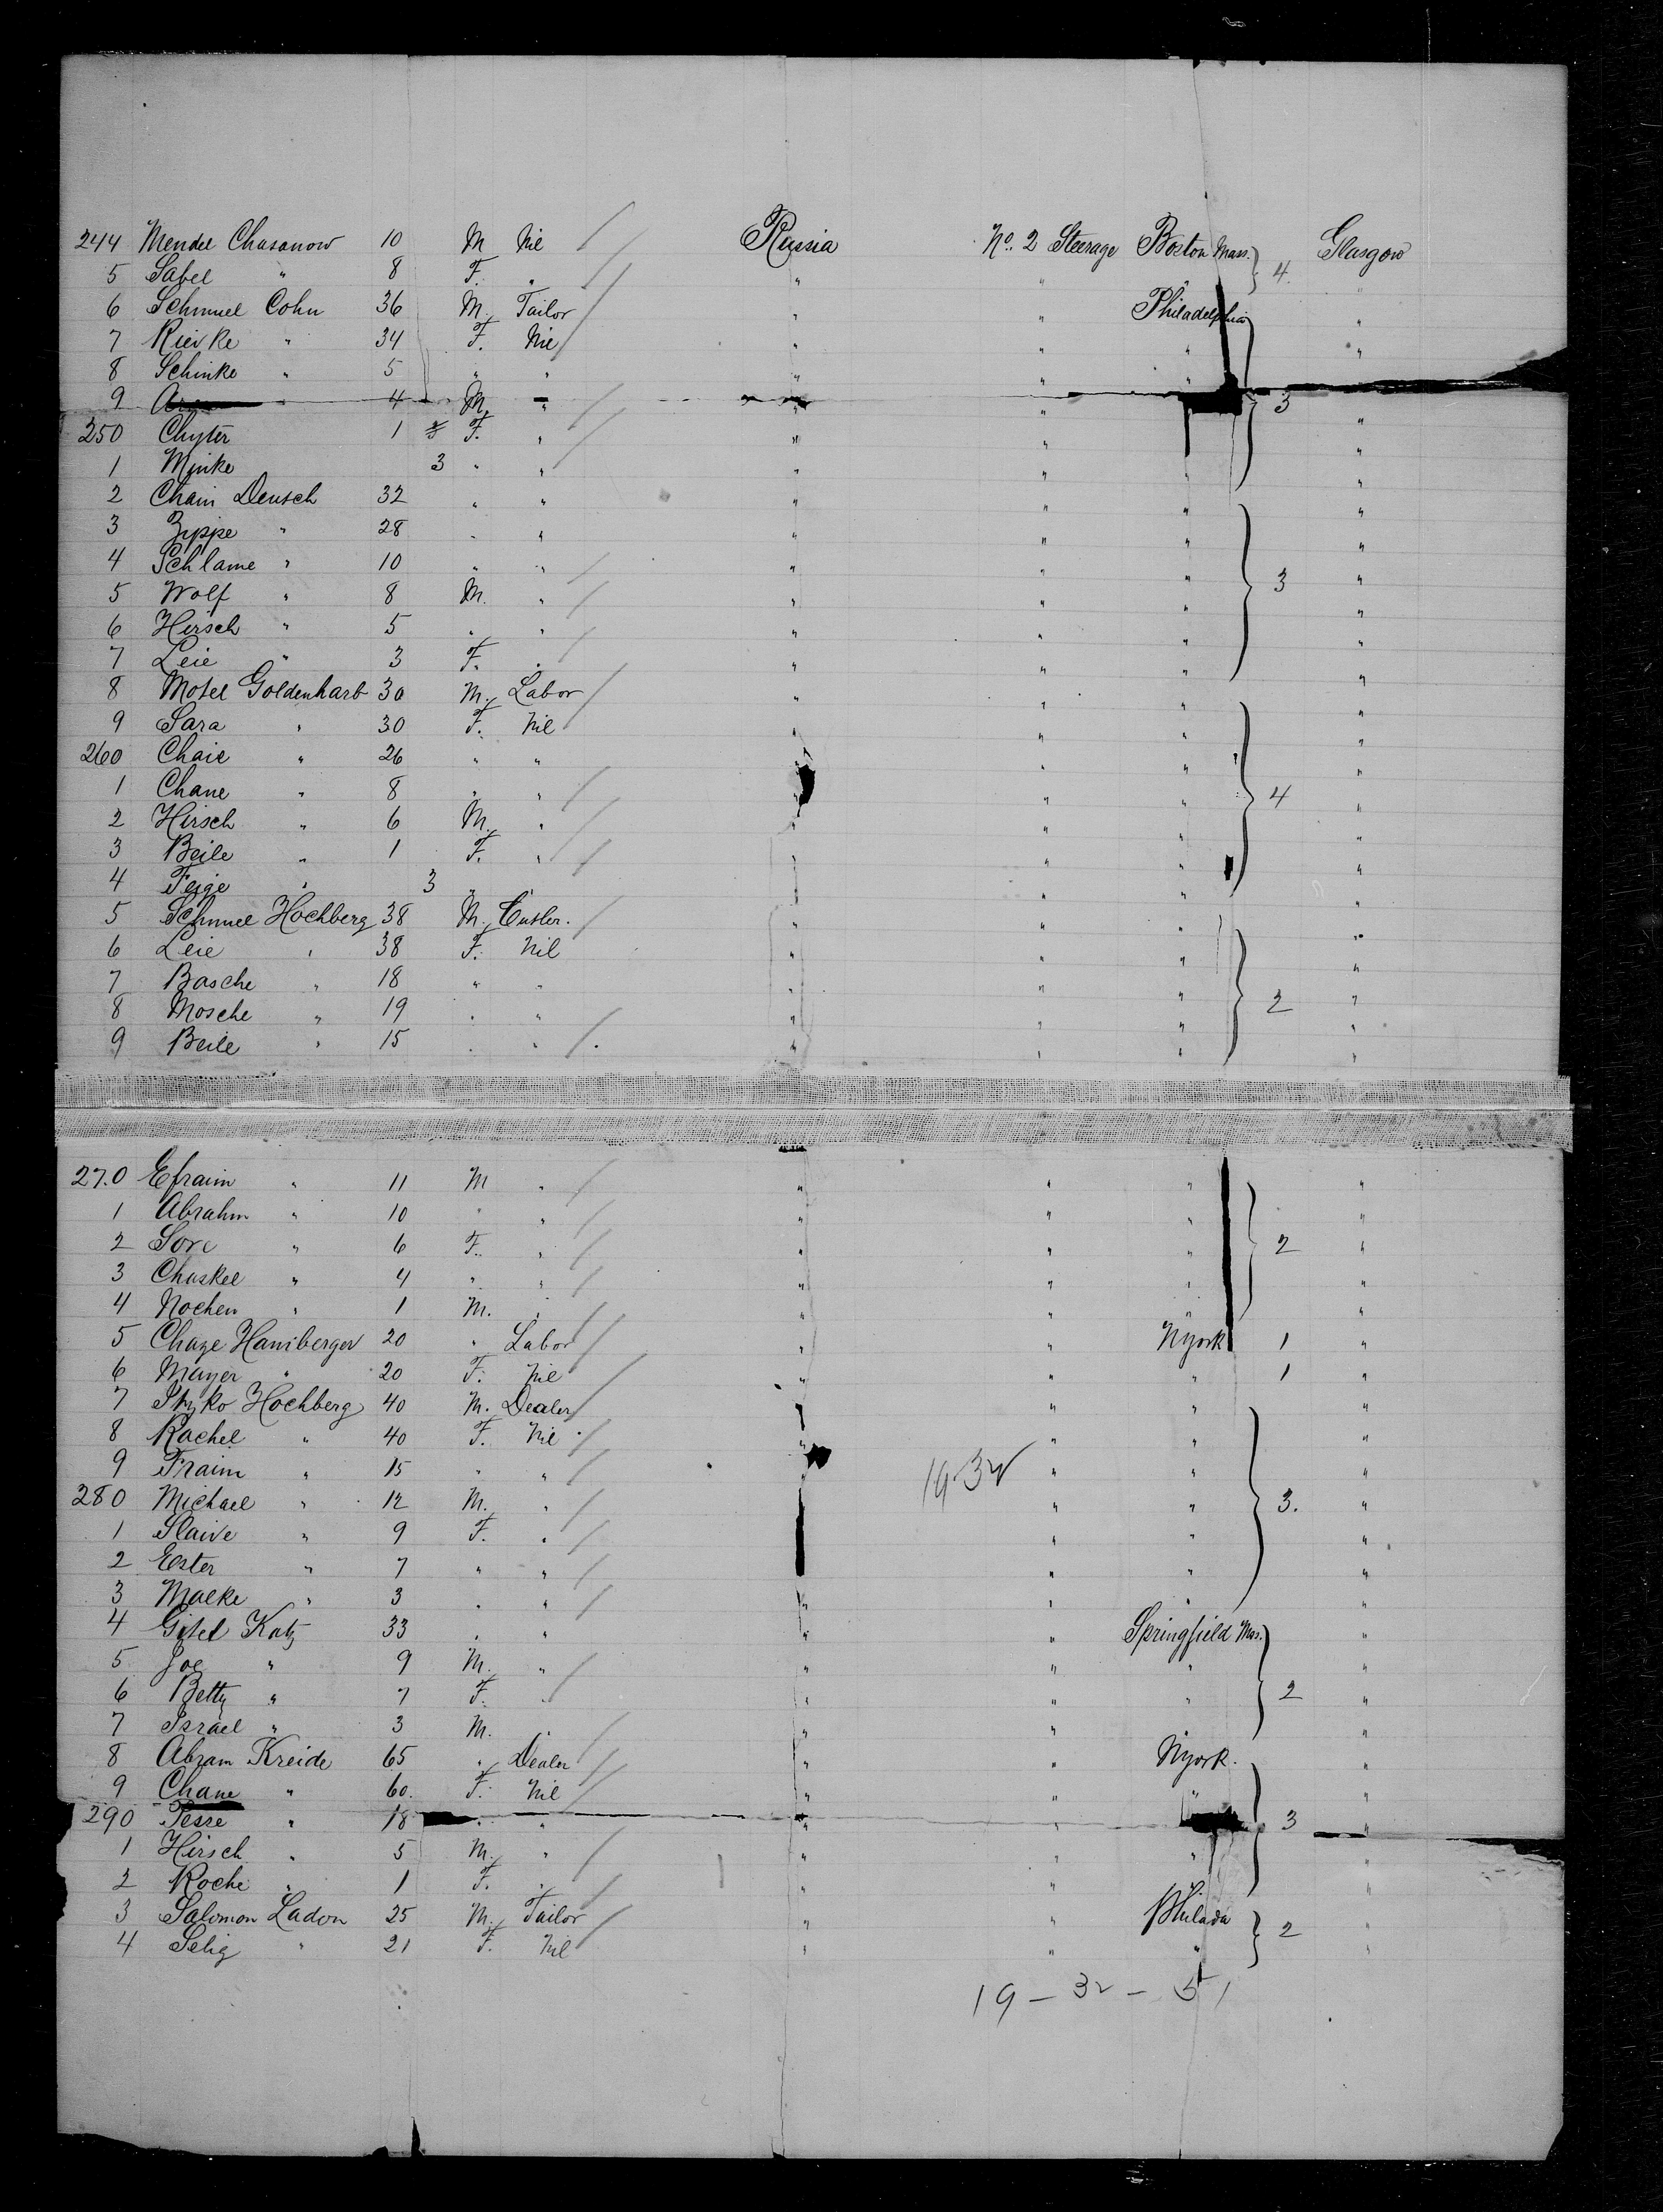 244 Mendel Chasanow 10 M Nil / Russia No. 2 Steerage Boston Mass. Glasgow
5 Sabel " 8 F. " / " " " } 4. "
6 Schmuel Cohn 36 M. Tailor / " " Philadelphia "
7 Rievke " 34 F. Nil / " " " "
8 Schinke " 5 " " " " " "
9 " 4 M " / " " } 3 "
250 Chyter 1 F. " / " " " "
1 Minke 3 " " " " " "
2 Chain Deusch 32 " " " " " "
3 Zippe " 28 " " " " " "
4 Schlame " 10 " " / " " " "
5 Wolf " 8 M. " / " " " } 3 "
6 Hersch " 5 " " / " " " "
7 Leie " 3 F. " / " " " "
8 Motel Goldenharb 30 M. Labor / " " " "
9 Sara " 30 F. Nil / " " " "
260 Chaie " 26 " " " " " "
1 Chane " 8 " " / " " " } 4 "
2 Hirsch " 6 M. " / " " " "
3 Beile " 1 F. " / " " " "
4 Feige " 3 " " " " " "
5 Schmuel Hochberg 38 M. Cutler. / " " " "
6 Leie " 38 F. Nil " " " "
7 Basche " 18 " " " " " "
8 Mosche " 19 " " " " " } 2 "
9 Beile " 15 " " / " " " "
270 Efraim " 11 M " / " " " "
1 Abrahm " 10 " " / " " " "
2 Sore " 6 F. " / " " " } 2 "
3 Chaskel " 4 " " / " " " "
4 Nochen " 1 M. " / " " " "
5 Chaze Hamberger 20 " Labor / " " Nyork 1 "
6 Mayer " 20 F. Nil / " " " 1 "
7 Hochberg 40 M. Dealer / " " " "
8 Rachel " 40 F. Nil / " " " "
9 Fraim " 15 " " / " 19-32 " " "
280 Michael " 12 M. " / " " " } 3. "
1 Slaive " 9 F. " / " " " "
2 Ester " 7 " " / " " " "
3 Malke " 3 " " / " " " "
4 Gitel Katz 33 " " " " Springfield Mas. "
5 Joe " 9 M. " / " " " "
6 Betty " 7 F. " / " " " } 2 "
7 Israel " 3 M. " / " " " "
8 Abram Kreide 65 " Dealer / " " Nyork. "
9 Chane " 60. F. Nil / " " " "
290 Tesse " 18 " " " " " } 3 "
1 Hirsch " 5 M. " / " " " "
2 Roche " 1 F. " / " " " "
3 Salomon Ladon 25 M. Tailor / " " Philada } 2 "
4 Selig " 21 F. Nil / " " " "
19 - 32 - 51